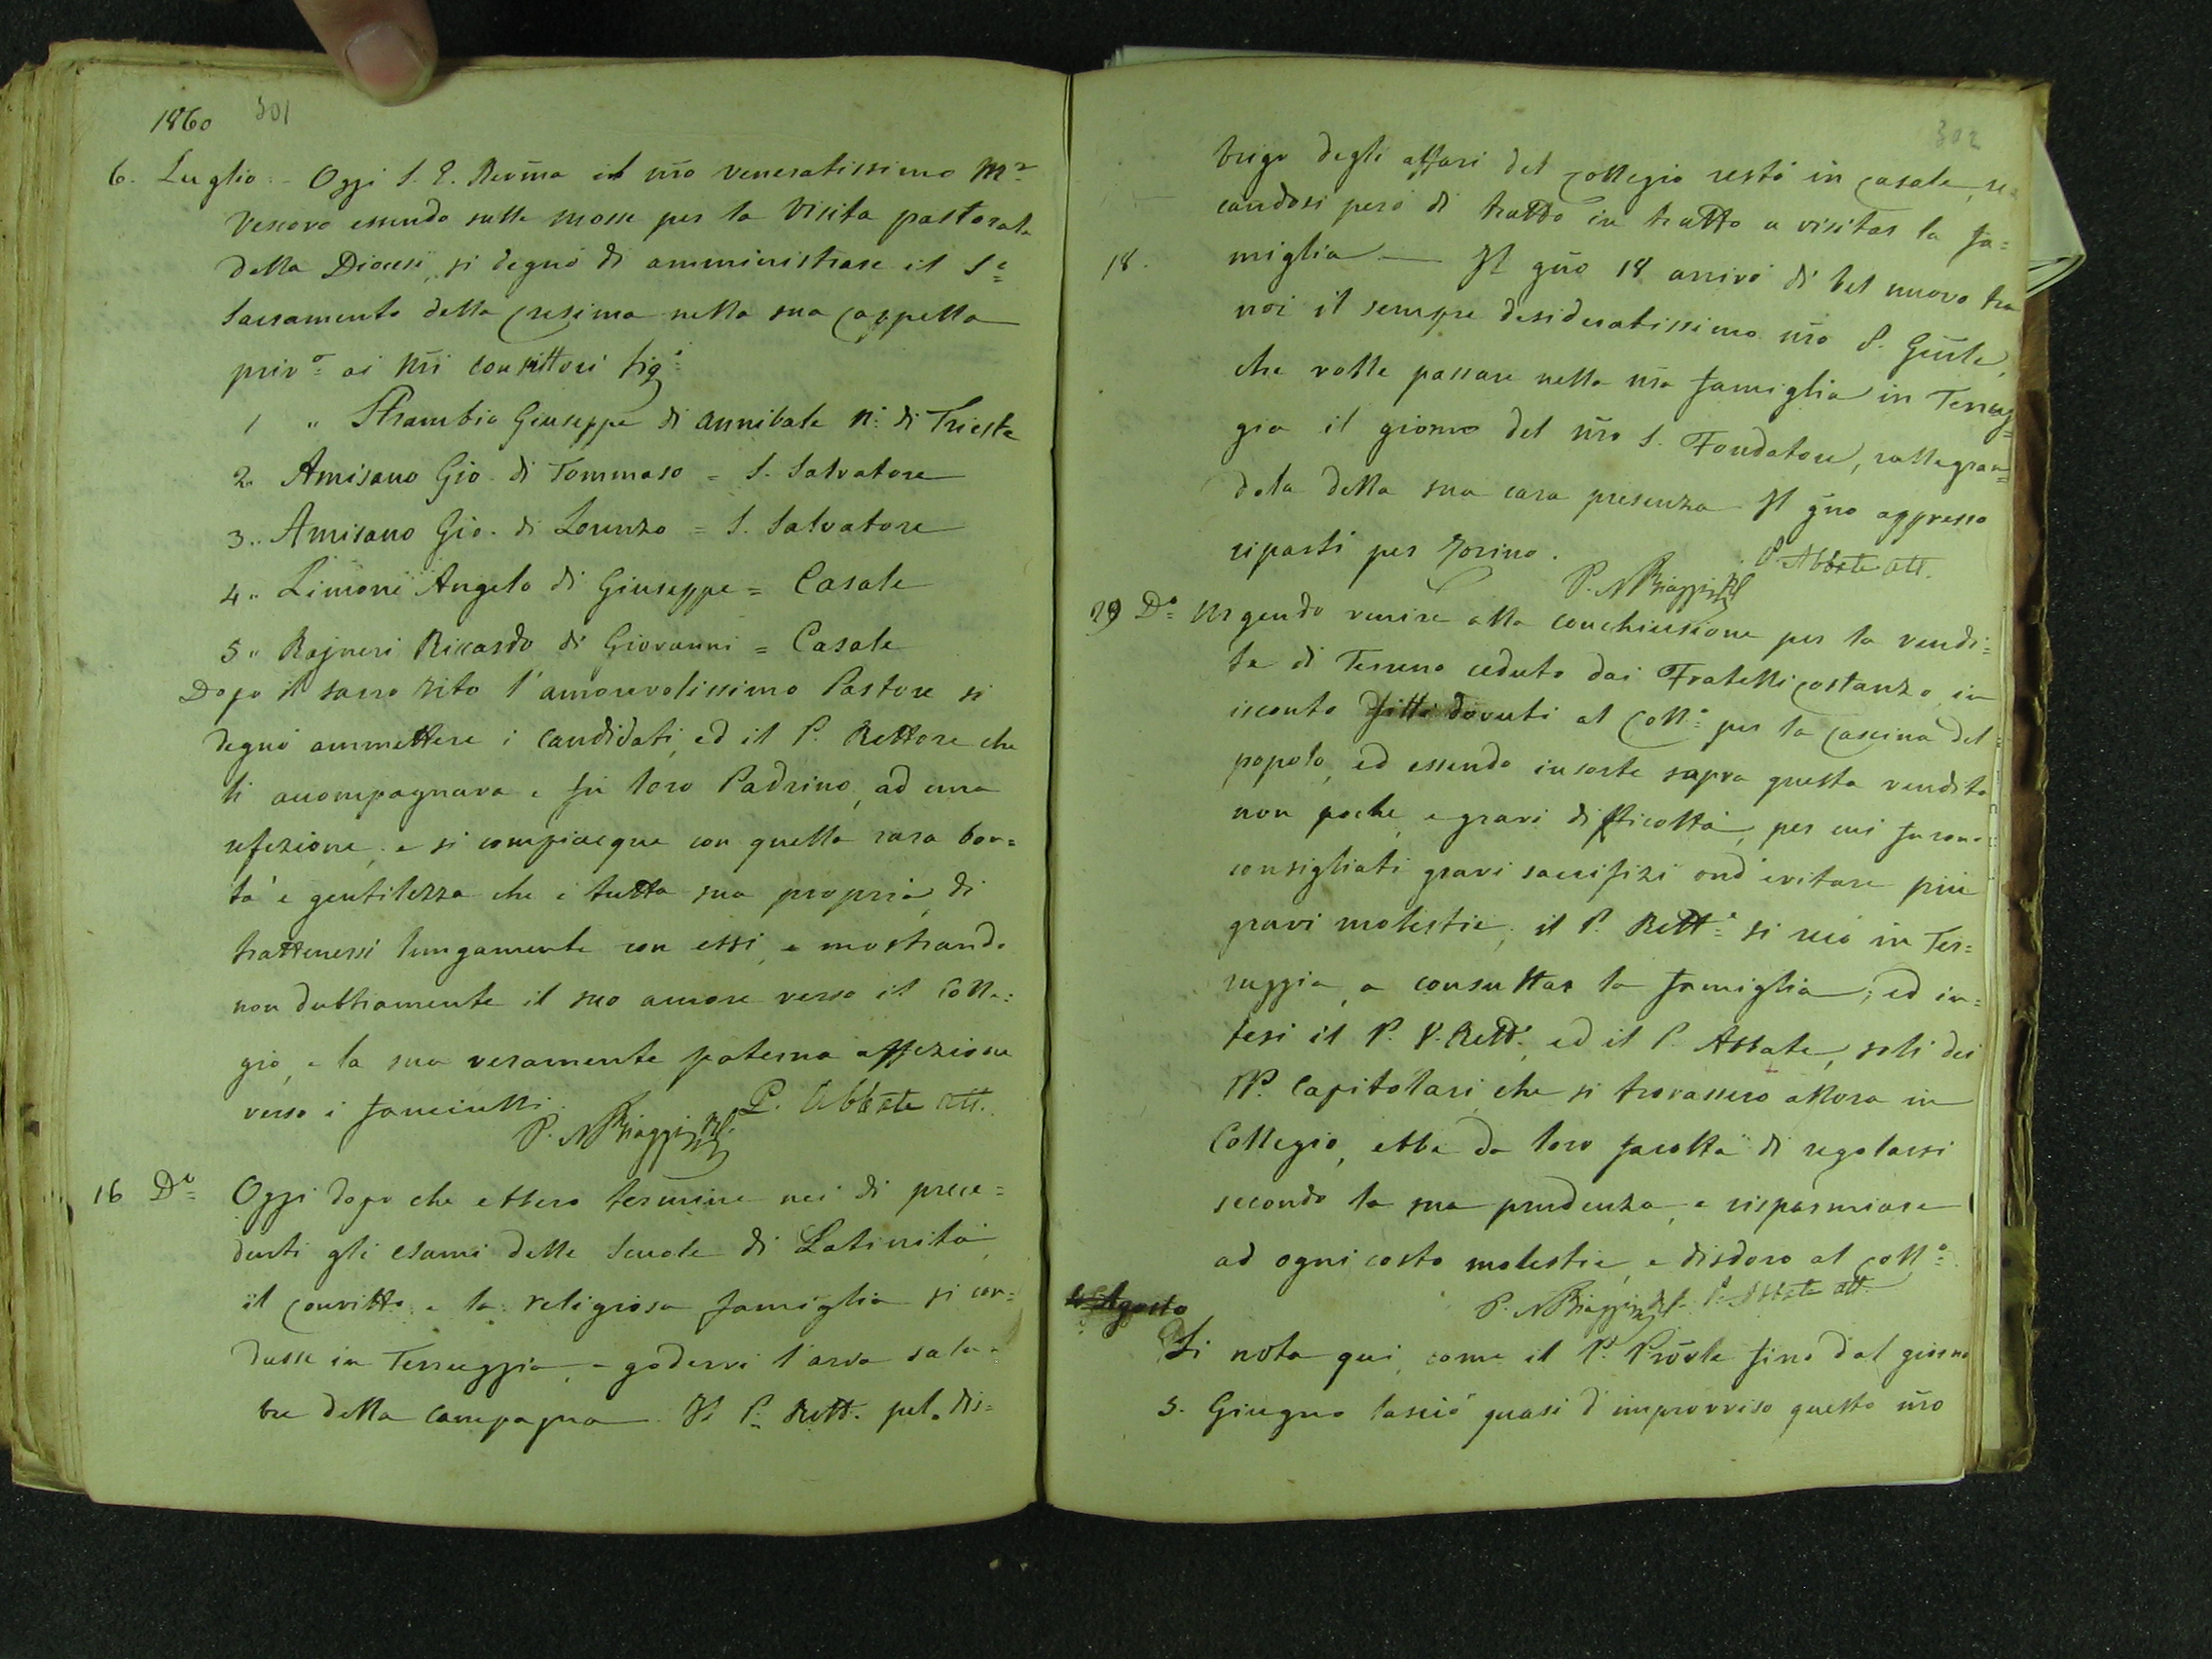 1860 301
6. Luglio - Oggi S. E. Rev̄ma il nr̄o veneratissimo M.r
Vescovo essendo sulle mosse per la Visita pastorale
della Diocesi, si degnò di amministrare il S.
Sacramento della Cresima nella sua Cappella
priv.a ai nr̄i convittori Sig.i
1 " Strambio Giuseppe di Annibale n. di Trieste
2. Amisano Gio. di Tommaso = S. Salvatore
3.. Amisano Gio. di Lorenzo = S. Salvatore
4.. Limone Angelo di Giuseppe = Casale
5 " Rajneri Riccardo di Giovanni = Casale
Dopo il sacro rito l'amorevolissimo Pastore si
degnò ammettere i candidati, ed il P. Rettore che
li accompagnava e fu loro Padrino, ad una
refezione, e si compiacque con quella rara bon=
tà e gentilezza che è tutta sua propria, di
trattenersi lungamente con essi, e mostrando
non dubbiamente il suo amore verso il Colle=
gio, e la sua veramente paterna affezione
verso i fanciulli.
P. Abbate att.
P. N Biaggi Rf.
16 D.o Oggi dopo che ebbero termine nei dì prece=
denti gli esami delle Scuole di Latinità,
il Convitto e la religiosa famiglia si con=
dusse in Terruggia, a godervi l'aria salu=
bre della campagna. Il P. Rett. pel dis=
302
brigo degli affari del Collegio restò in Casale, re=
candosi però di tratto in tratto a visitar la fa=
18. miglia — Il gn̄o 18 arrivò di bel nuovo tra
noi il sempre desideratissimo nr̄o P. Gn̄rle,
che volle passare nella nr̄a famiglia in Terrug=
gia il giorno del nr̄o S. Fondatore, rallegran=
dola della sua cara presenza. Il gn̄o appresso
ripartì per Torino.
P. Abbate att.
P. N Biaggi Rf
29 D.o Urgendo venire alla conchiusione per la vendi=
ta di Terreno ceduto dai Fratelli Costanzo, in
isconto fitti dovuti al Coll.o per la Cascina del
popolo, ed essendo insorte sopra questa vendita
non poche, e gravi difficoltà, per cui furono
consigliati gravi sacrifizi ond'evitare più
gravi molestie, il P. Rett.e si recò in Ter=
ruggia, a consultar la famiglia; ed in=
tesi il P. V. Rett., ed il P. Abbate, soli dei
PP. Capitolari che si trovassero allora in
Collegio, ebbe da loro facoltà di regolarsi
secondo la sua prudenza, e risparmiare
ad ogni costo molestie, e disdoro al Coll.o
P. N Biaggi Rf. P. Abbate att.
Agosto
Si nota qui, come il P. Prov̄le fino dal giorno
5. Giugno lasciò quasi d'improvviso questo nr̄o